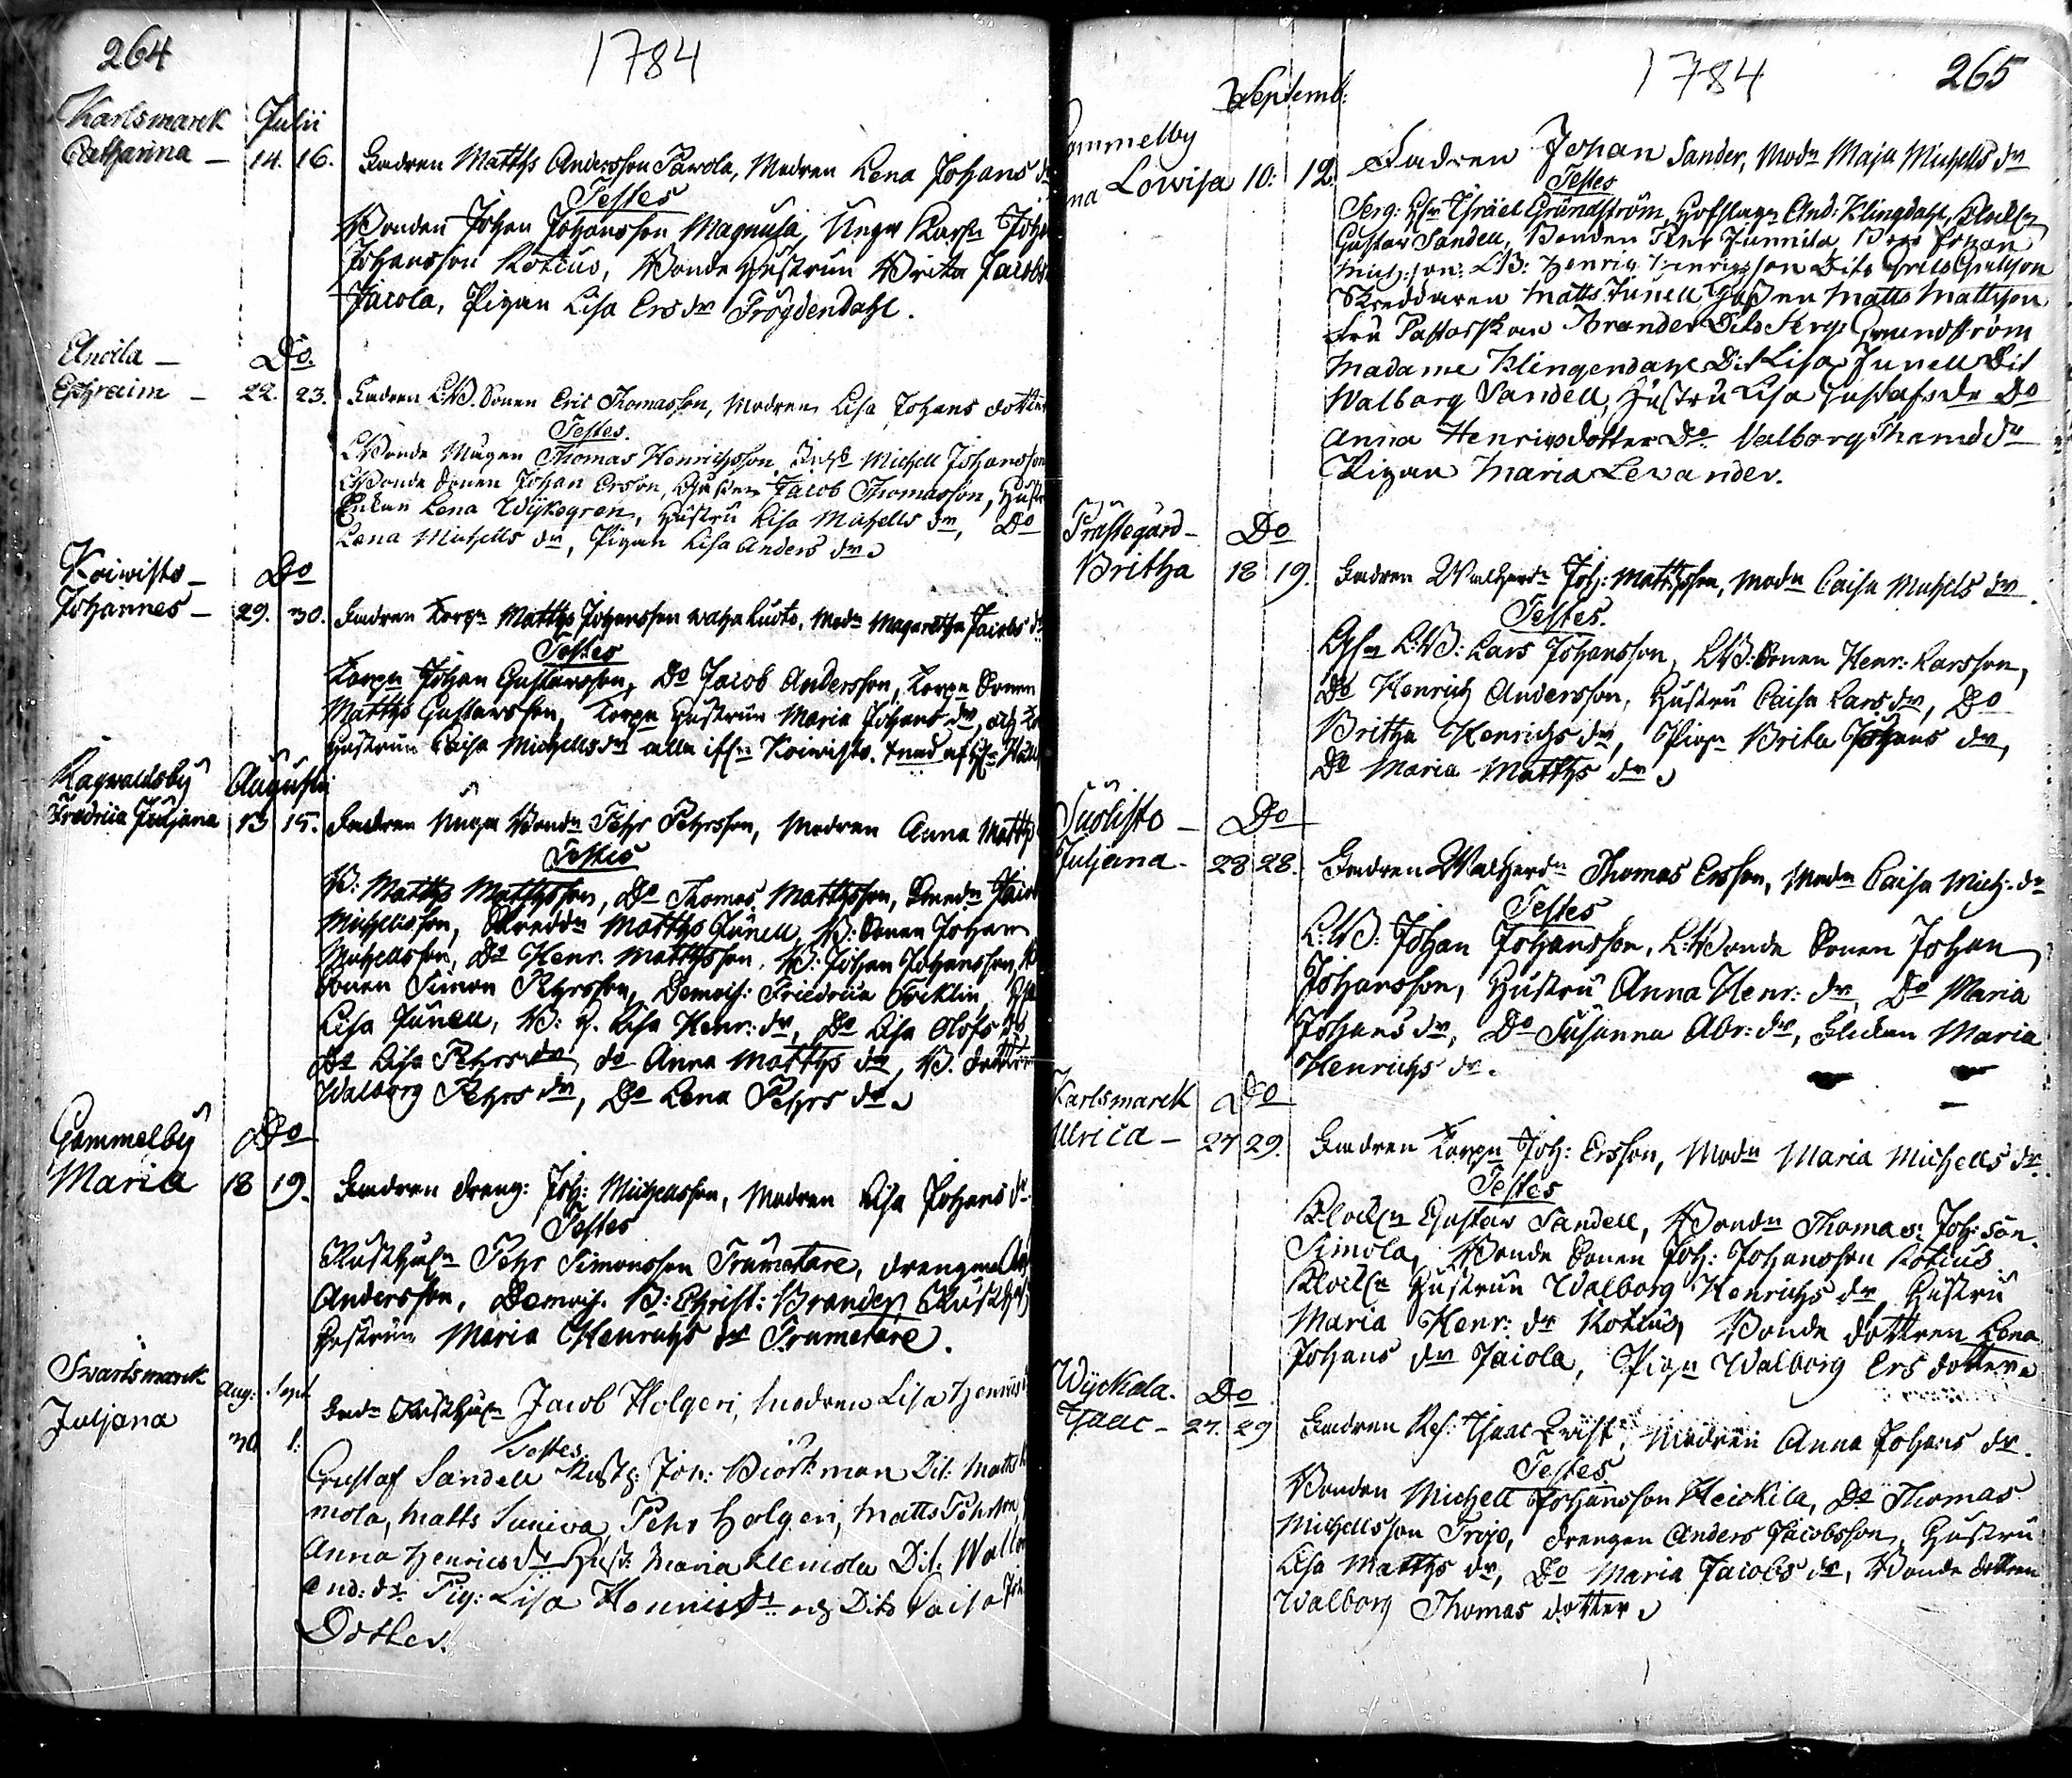 264
1784
Karlsmarck Julii
Catharina — 14. 16. Fadren Matths Andersson Pavola, Modren Lena Johans dr
Testes
Bonden Johan Johansson Magnula, Unga Karln Joha
Johansson Kotius, Bonde Hustrun Brita Jacobs
Jacola, Pigan Lisa Ers dr Frögdendahl.
Ancila — Do.
Ephraim — 22. 23. Fadren L.B. Sonen Eric Thomasson, Modren Lisa Johans dotter
Testes.
LBonde Mågen Thomas Henrichsson, Michell Johansson
LBonde Sonen Johan Ersson, Jacob Thomasson, Hustr
Enkan Lena Wijkegren, Hustru Lisa Michells dr, Do
Lena Michells dr, Pigan Lisa Anders dr
Koiwisto — Do
Johannes — 29. 30. Fadren Torpn Matths Johansson, Modn Magaretha Jacobs dr
Testes
Torpn Johan Gustavsson, Do Jacob Andersson, Torpn Sonen
Matths Gustavsson, Torpn Hustrun Maria Johans dr, och
Hustrun Caisa Michells dr alla ifrn Koiwisto.
Ragwaldsby Augusti
Fredrica Juljana 13 15. Fadren Unga Bondn Pehr Pehrsson, Modren Anna Matths
Testes
B: Matths Mathsson, Do Thomas Mathsson, Jaco
Michellsson, Skreddn Matths Junell, B: Sonen Johan
Michellsson, Do Henr. Matthsson, B: Johan Johansson,
Sonen Simon Pehrsson, Demois: Friedrica
Lisa Junell, B: H. Lisa Henr: dr, Do Lisa Olofs dr
Do Lisa Pehrs dr, do Anna Matths dr, B. dottren
Walborg Pehrs dr, Do Lena Pehrs dr
Gammelby Do
Maria 18 19. Fadren dreng: Joh: Michellsson, Modren Lisa Johans dr
Testes
Pehr Simonsson Trumetare, drengen
Andersson, Demois. B: Christ: Brander,
Hustrun Maria Henrichs dr Trumetare.
Swartsmarck Aug: Sept
Juljana 30 1: Fadn Jacob Holgeri, modren Lisa Henrics
Testes.
Gustaf Sandell Rusth: Joh: Biörkman Dit: Matts
mola, Matts Suniva, Pehr Holgeri, Matts Pehrson,
Anna Henrics dr Hust: Maria Clemola Dit: Walbor
And: dr Pig: Lisa Henrics dr och Dito Caisa Joh
Dotter.
265
1784
Septemb:
ammelby
na Lovisa 10: 12. Fadren Johan Sander, Modn Maja Michells dr
Testes
Serg: Hr Israel Grundström, Hofslagn And: Klingdahl, Klockn
Gustav Sandell, Bonden Pehr Junnila, Johan
Mich:son: LB: Henric Henricsson Dito
Skreddaren Matts Junell Matts Mattson
Fru Pastorskan Brander Dito Serg: Grundström
Madame Klingendahl Dit Lisa Junell Dit
Walborg Sandell, Hustru Lisa Gustafs dr Do
Anna Henricsdotter Do Valborg Thoms dr
Pigan Maria Levander.
Prästegård — Do
Britha 18 19. Fadren Joh: Matthsson, Modn Caisa Michels dr.
Testes.
L:B: Lars Johansson, LB: Sonen Henr: Larsson,
Do Henrich Andersson, Hustru Caisa Lars dr, Do
Britha Henrichs dr, Pign Brita Johans dr,
Do Maria Matths dr
Suolisto — Do
Juljana — 28 28. Fadren Thomas Ersson, Modn Caisa Mich. dr
Testes
L:B: Johan Johansson, L:Bonde Sonen Johan
Johansson, Hustru Anna Henr: dr, Do Maria
Johans dr, Do Susanna Abr: dr, Flickan Maria
Henrichs dr.
Karlsmarck Do
Ulrica — 27 29. Fadren Torpn Joh: Ersson, Modn Maria Michells dr
Testes
Klockn Gustav Sandell, Bondn Thomas: Joh:son
Simola, Bonde Sonen Joh: Johansson Kotius
Klockn Hustrun Walborg Henrichs dr Hustru
Maria Henr: dr Kotius, Bonde dottren Lena
Johans dr Jacola, Pign Walborg Ers dotter
Wijckala. Do
Isaac — 27. 29 Fadren Isaac Qvist, Modren Anna Johans dr.
Testes
Bonden Michell Johansson Heickila, Do Thomas
Michellsson Trojo, drengen Anders Jacobsson, Hustru
Lisa Matths dr, Do Maria Jacobs dr, Bonde dottren
Walborg Thomas dotter